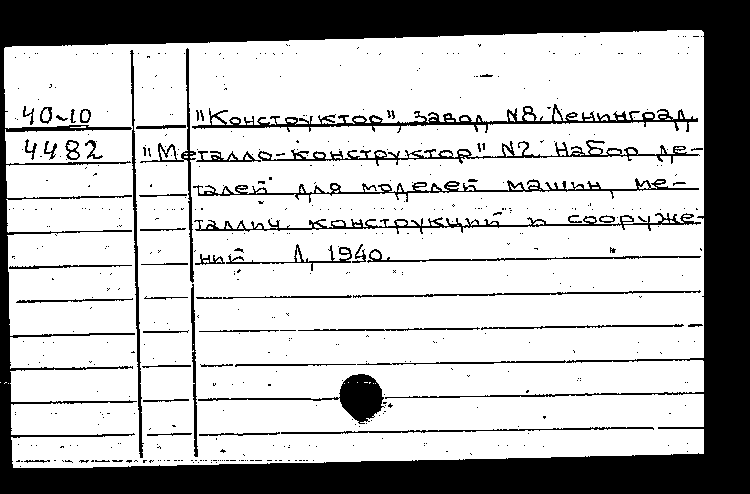 40-10 "Конструктор", завод N8. Ленинград.
4482 "Металло-конструктор" N2. Набор де-
талей для моделей машин, ме-
таллич. конструкций и сооруже-
ний. Л., 1940.